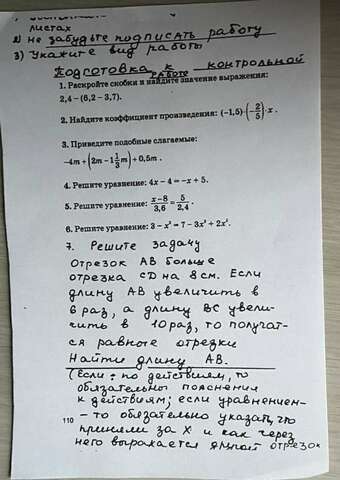 листах
2) не забудьте подписать работу
3) Укажите вид работы
Подготовка к контрольной
работе
1. Раскройте скобки и найдите значение выражения:
2,4 – (6,2 – 3,7).
2. Найдите коэффициент произведения: (–1,5)·(–2/5)·x.
3. Приведите подобные слагаемые:
–4m + (2m – 1 1/3 m) + 0,5m.
4. Решите уравнение: 4x – 4 = –x + 5.
5. Решите уравнение: (x – 8)/3,6 = 5/2,4.
6. Решите уравнение: 3 – x² = 7 – 3x³ + 2x².
7. Решите задачу
Отрезок AB больше
отрезка CD на 8 см. Если
длину AB увеличить в
6 раз, а длину DC увели-
чить в 10 раз, то получат-
ся равные отрезки
Найти длину AB.
(Если: по действиям, то
обязательны пояснения
к действиям; если уравнением-
– то обязательно указать, что
110 приняли за X и как через
него выражается другой отрезок